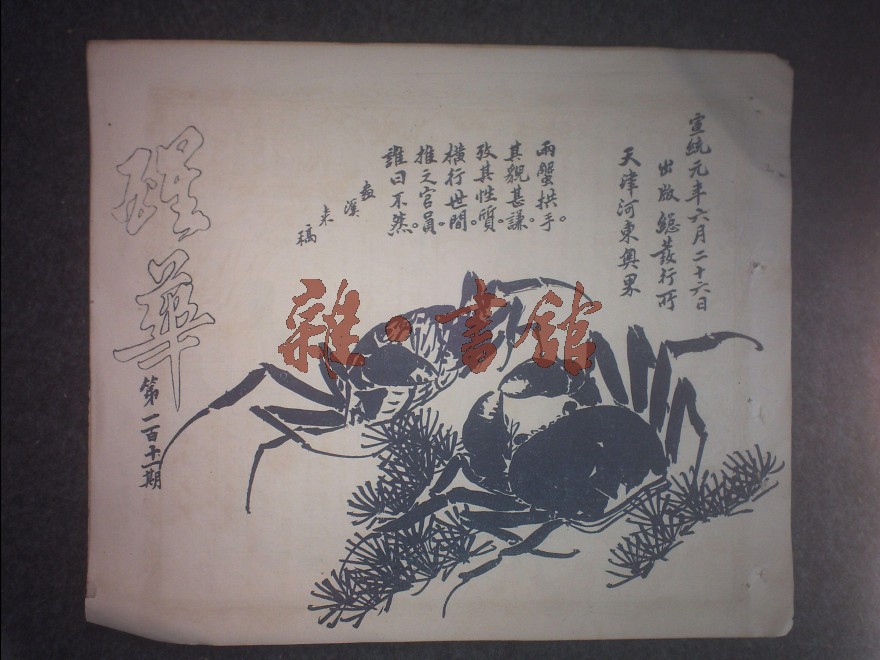 宣統元年六月二十六日
出版 總發行所
天津河東奧界
兩蟹拱手。
其貌甚謙。
攷其性質。
橫行世間。
推之官員。
誰曰不然。
溪来稿
醒華
第一百十一期
雜·書館